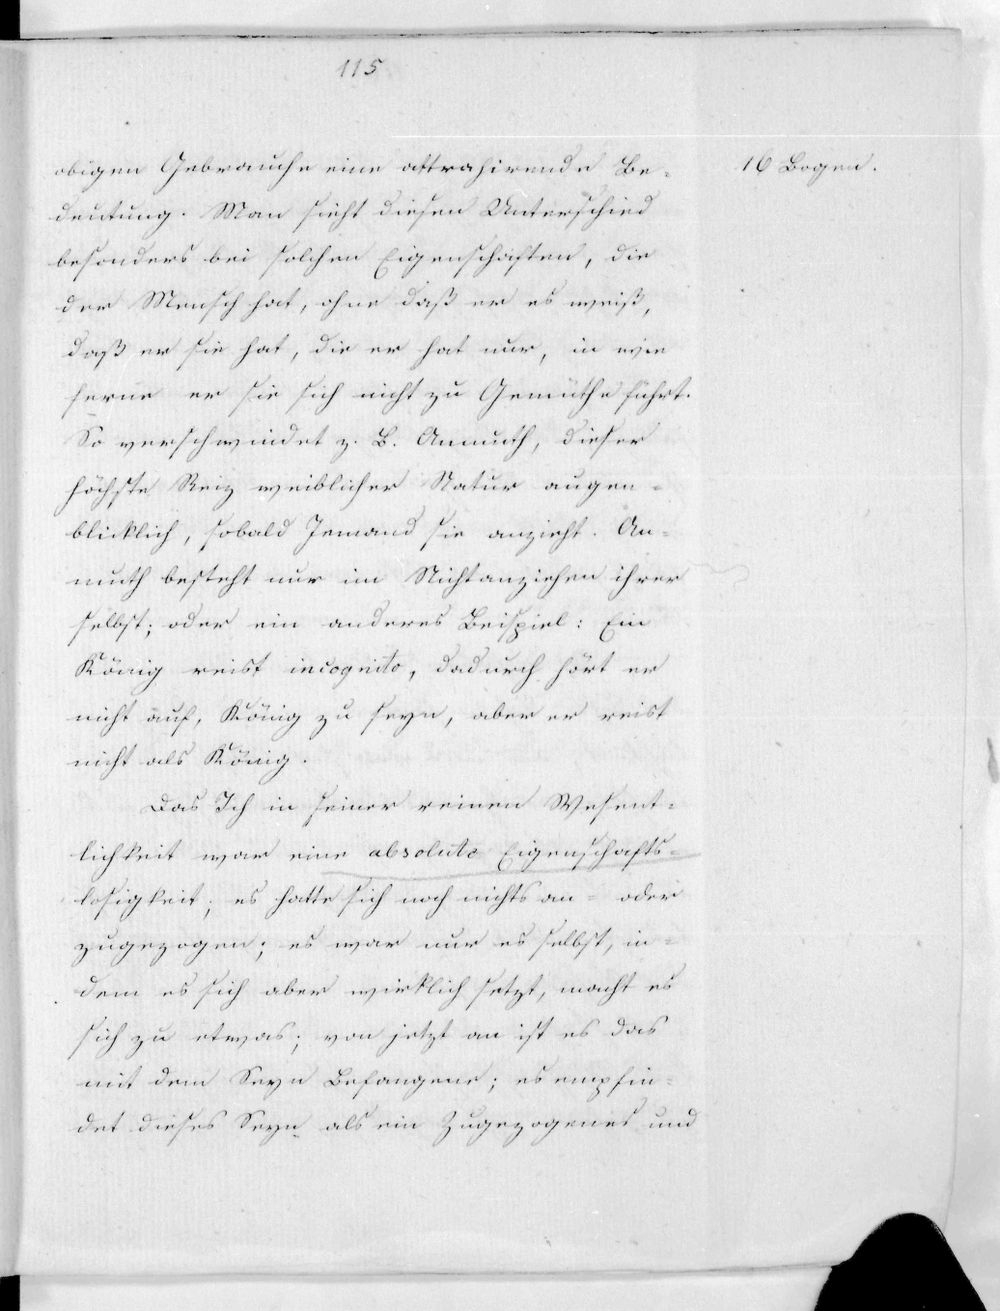 115
16 Bogen.
obigen Gebrauche eine attrahirende Be-
deutung. Man sieht diesen Unterschied
besonders bei solchen Eigenschaften, die
der Mensch hat, ohne daß er es weiß,
daß er sie hat, die er hat nur, in wie
ferne er sie sich nicht zu Gemüthe führt.
So verschwindet z. B. Anmuth, dieser
höchste Reiz weiblicher Natur augen-
blicklich, sobald Jemand sie anzieht. An-
muth besteht nur im Nichtanziehen ihrer
selbst; oder ein anderes Beispiel: Ein
König reist incognito, dadurch hört er
nicht auf, König zu seyn, aber er reist
nicht als König.
Das Ich in seiner reinen Wesent-
lichkeit war eine absolute Eigenschafts-
losigkeit; es hatte sich noch nichts an- oder
zugezogen; es war nur es selbst, in-
dem es sich aber wirklich setzt, macht es
sich zu etwas; von jetzt an ist es das
mit dem Seyn Befangene; es empfin-
det dieses Seyn als ein Zugezogenes und